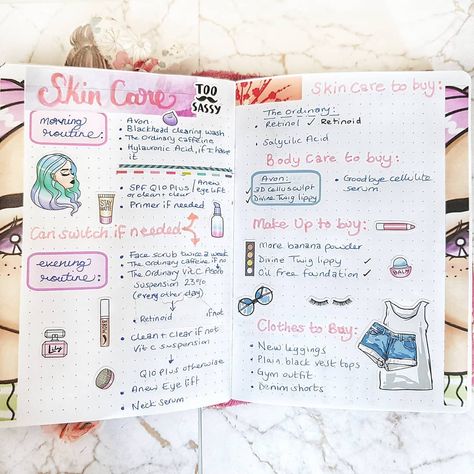 Skin Care
TOO
SASSY
morning
routine:
• Avon
• Blackhead clearing wash
• The Ordinary caffeine
• Hylauronic Acid, if I have
it
• SPF Q10 Plus / Anew
or clean + clear eye lift
• Primer if needed
STAY
Can switch if needed
evening
routine:
• Face scrub twice a week
• The Ordinary caffeine if no
• The Ordinary Vit C
suspension 23%
(every other day)
if not
• Retinoid
• clean + clear if not
Vit C suspension
Q10 Plus otherwise
• Anew Eye lift
• Neck serum
Skin Care to buy:
The Ordinary:
• Retinol ✓ Retinoid
• Salycilic Acid
Body Care to buy:
Avon:
• 3D Cellusculpt
Divine Twig lippy
• Goodbye cellulite
serum
Make Up to buy:
• More banana powder
• Divine Twig lippy ✓
• Oil free foundation ✓
BALM
Clothes to Buy:
• New leggings
• Plain black vest tops
• Gym outfit
• Denim shorts